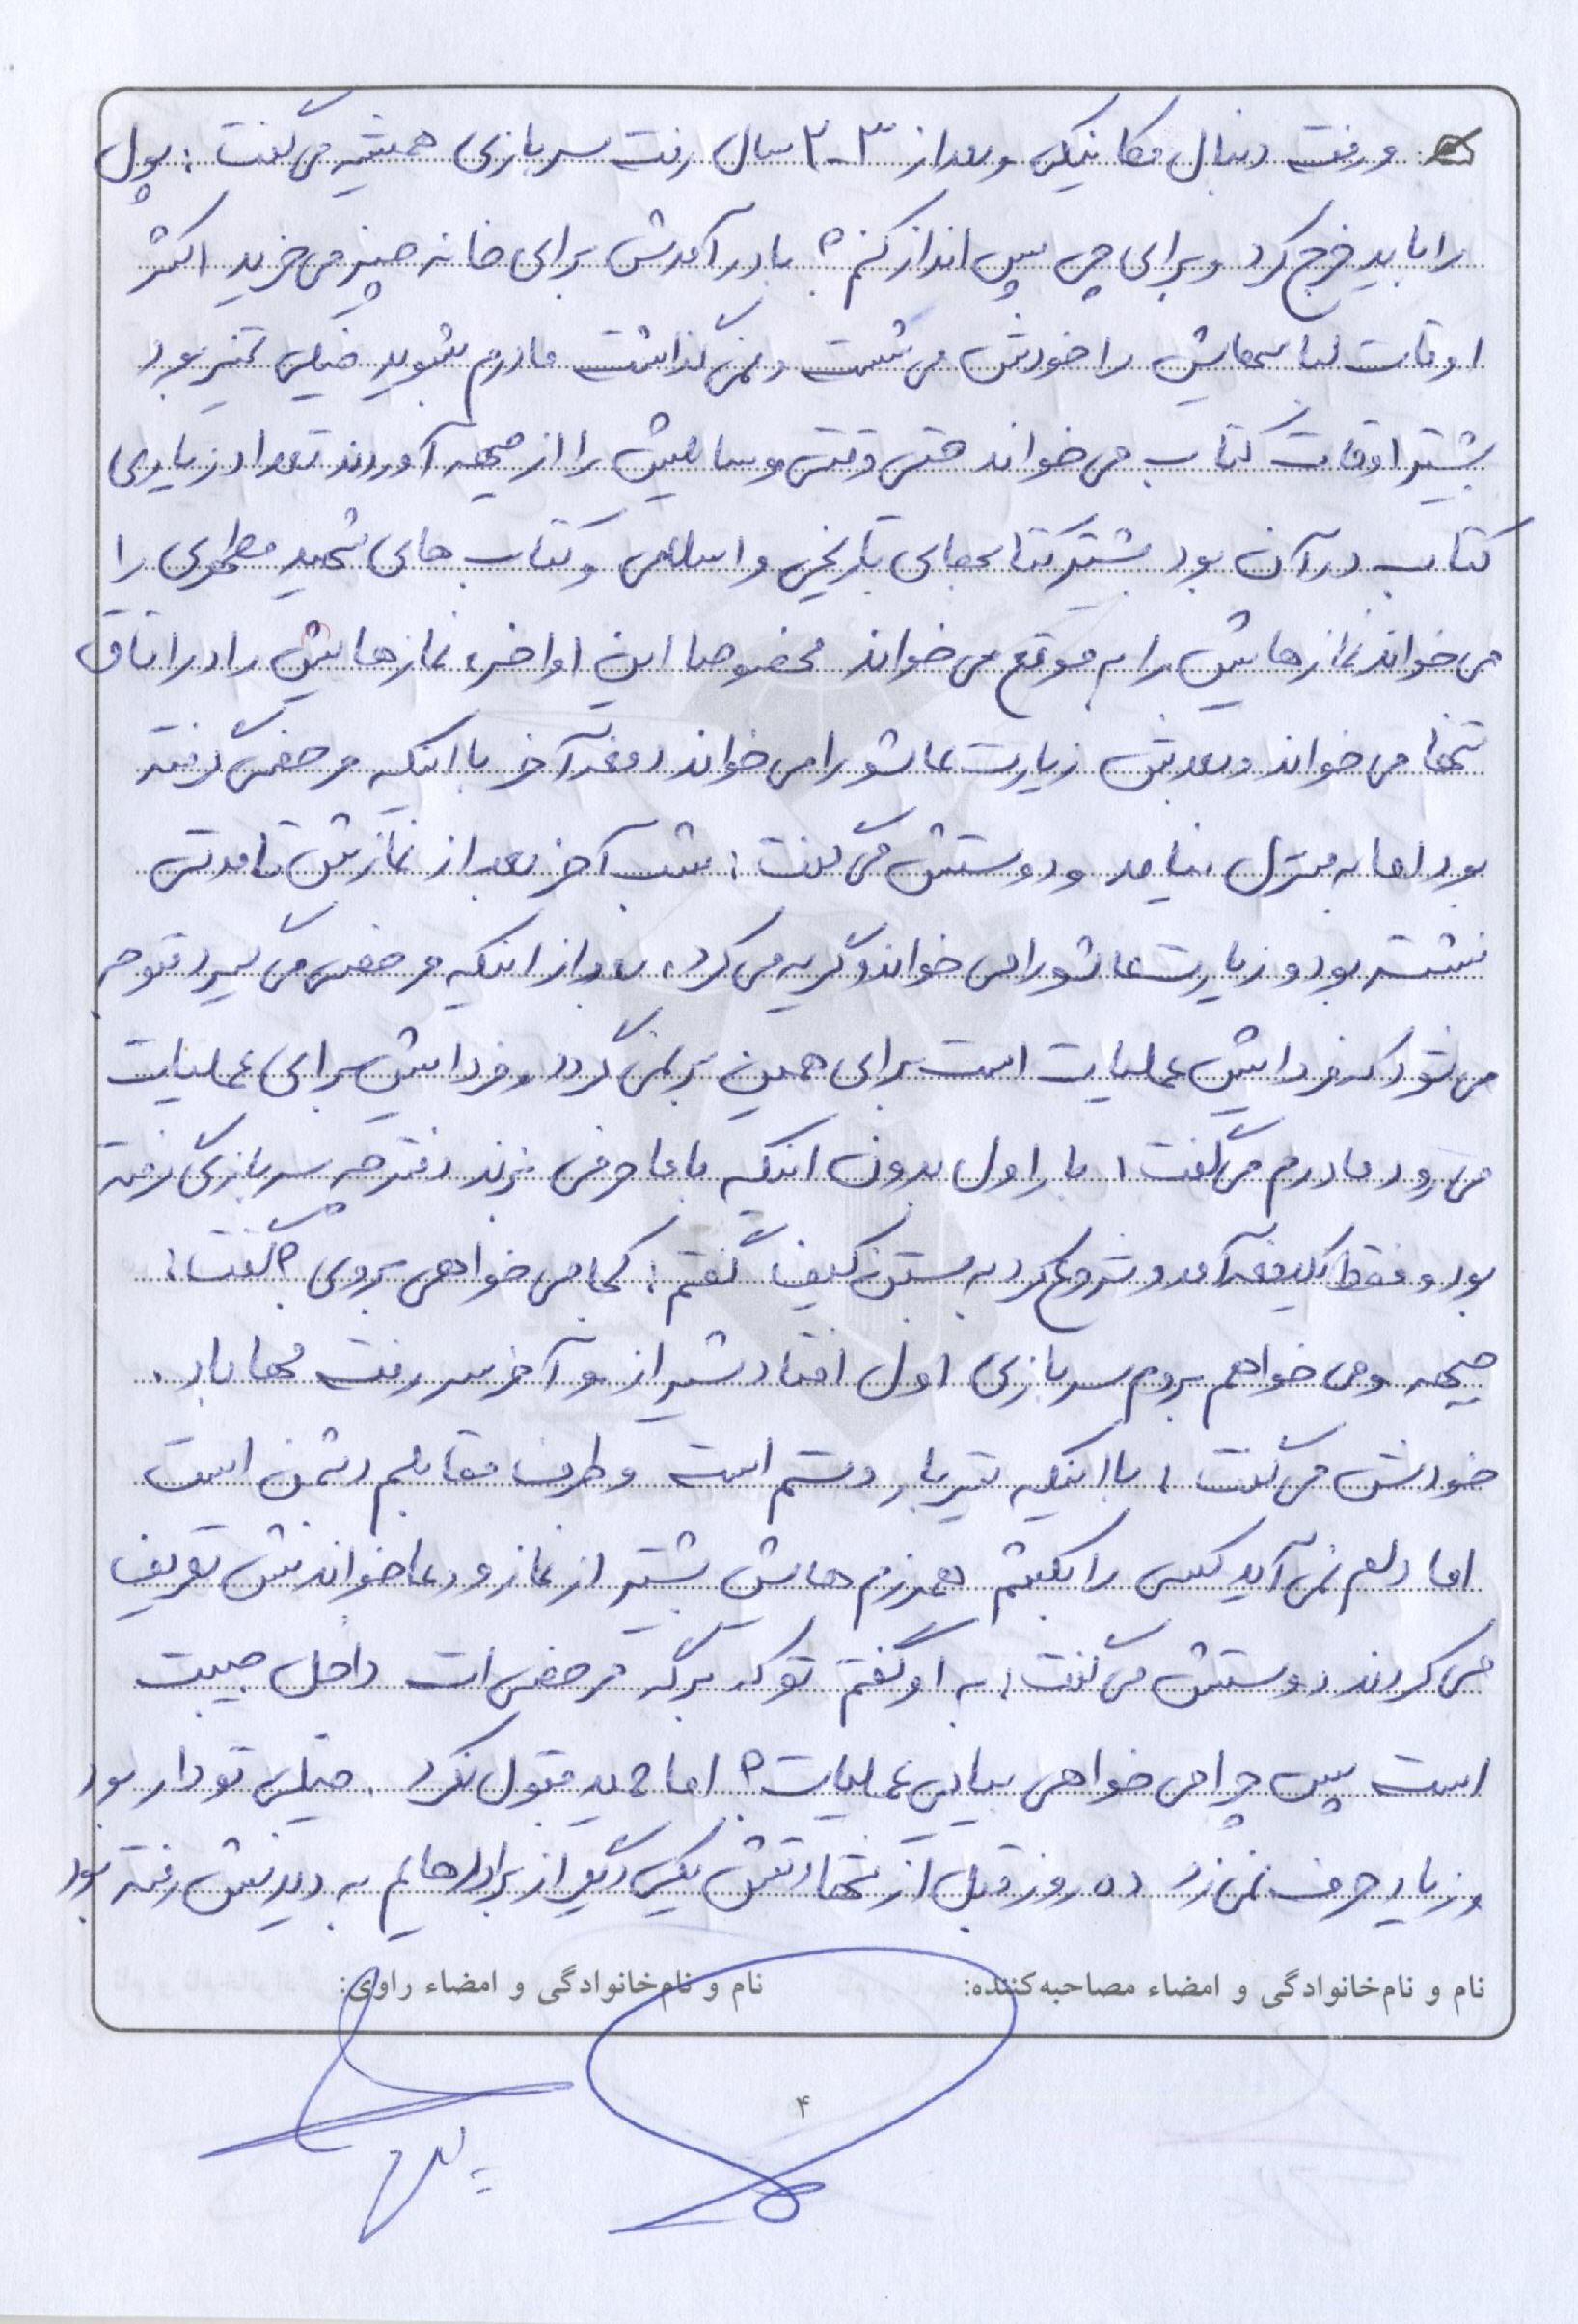 و رفت دنبال مکانیکی و بعد از ۳-۲ سال رفت سربازی همیشه می گفت: پول
را باید خرج کرد و برای چی پس انداز کنم؟ با درآمدش برای خانه چیز می خرید اکثر
اوقات لباسهایش را خودش می شست و نمی گذاشت مادرم بشوید خیلی تمیز بود
بیشتر اوقات کتاب می خواند حتی وقتی وسایلش را از جبهه آوردند تعداد زیادی
کتاب در آن بود بیشتر کتابهای تاریخی و اسلامی و کتاب های شهید مطهری را
می خواند نمازهایش را به موقع می خواند مخصوصا این اواخر، نمازهایش را در اتاق
تنها می خواند و بعدش زیارت عاشورا می خواند دفعه آخر با اینکه مرخصی گرفته
بود اما به منزل نیامد و دوستش می گفت: شب آخر بعد از نمازش تا مدتی
نشسته بود و زیارت عاشورا می خواند و گریه می کرد، بعد از اینکه مرخصی می گیرد متوجه
می شود که فردایش عملیات است برای همین بر نمی گردد و فردایش برای عملیات
می رود مادرم می گفت: بار اول بدون اینکه با ما حرفی بزند دفترچه سربازی گرفته
بود و فقط یکدفعه آمد و شروع کرد به بستن کیف گفتم: کجا می خواهی بروی؟ گفت:
جبهه و می خواهم بروم سربازی اول افتاد شیراز و آخر سر رفت مهاباد.
خودش می گفت: با اینکه تیربار دستم است و طرف مقابلم دشمن است
اما دلم نمی آید کسی را بکشم همرزم هایش بیشتر از نماز و دعا خواندنش تعریف
می کردند دوستش می گفت: به او گفتم تو که برگه مرخصی ات داخل جیبت
است پس چرا می خواهی بیایی عملیات؟ اما حمید قبول نکرد. خیلی تودار بود
و زیاد حرف نمی زد ده روز قبل از شهادتش یکی دیگر از برادرهایم به دیدنش رفته بود
نام و نام‌خانوادگی و امضاء مصاحبه‌کننده: نام و نام‌خانوادگی و امضاء راوی:
۴